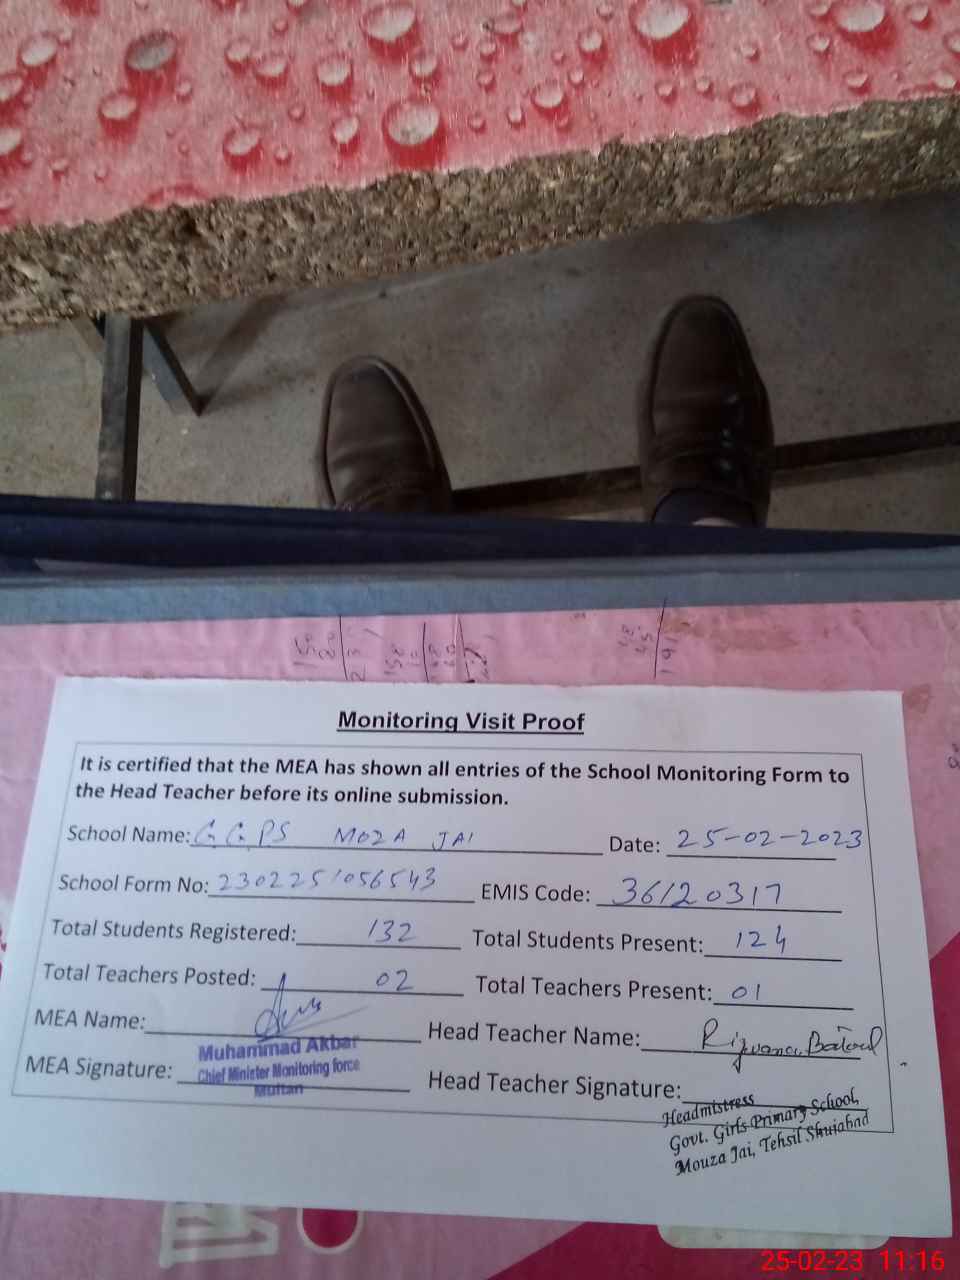 Monitoring Visit Proof
It is certified that the MEA has shown all entries of the School Monitoring Form to
the Head Teacher before its online submission.
School Name: GGPS MOZA JAI Date: 25-02-2023
School Form No: 2302251056543 EMIS Code: 36120317
Total Students Registered: 132 Total Students Present: 124
Total Teachers Posted: 02 Total Teachers Present: 01
MEA Name: Head Teacher Name: Rizvana Batool
Muhammad Akbar
MEA Signature: Chief Minister Monitoring force Head Teacher Signature:
Multan
Headmistress
Govt. Girls Primary School,
Mouza Jai, Tehsil Shujabad
25-02-23 11:16